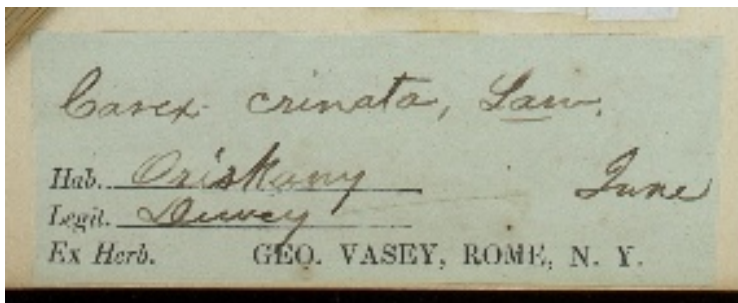 Carex crinata, Lam.
Hab. Oriskany June
Legit. Dewey
Ex Herb. GEO. VASEY, ROME, N. Y.